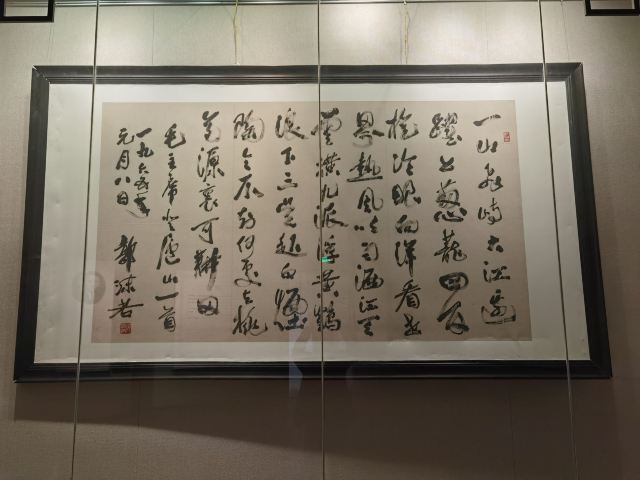 一山飛峙大江邊
躍上葱蘢四百
旋冷眼向洋看世
界熱風吹雨洒江天
雲横九派浮黄鶴
浪下三吴起白煙
陶令不知何處去桃
花源裏可耕田
毛主席登廬山一首
一九六五年
元月八日 郭沫若